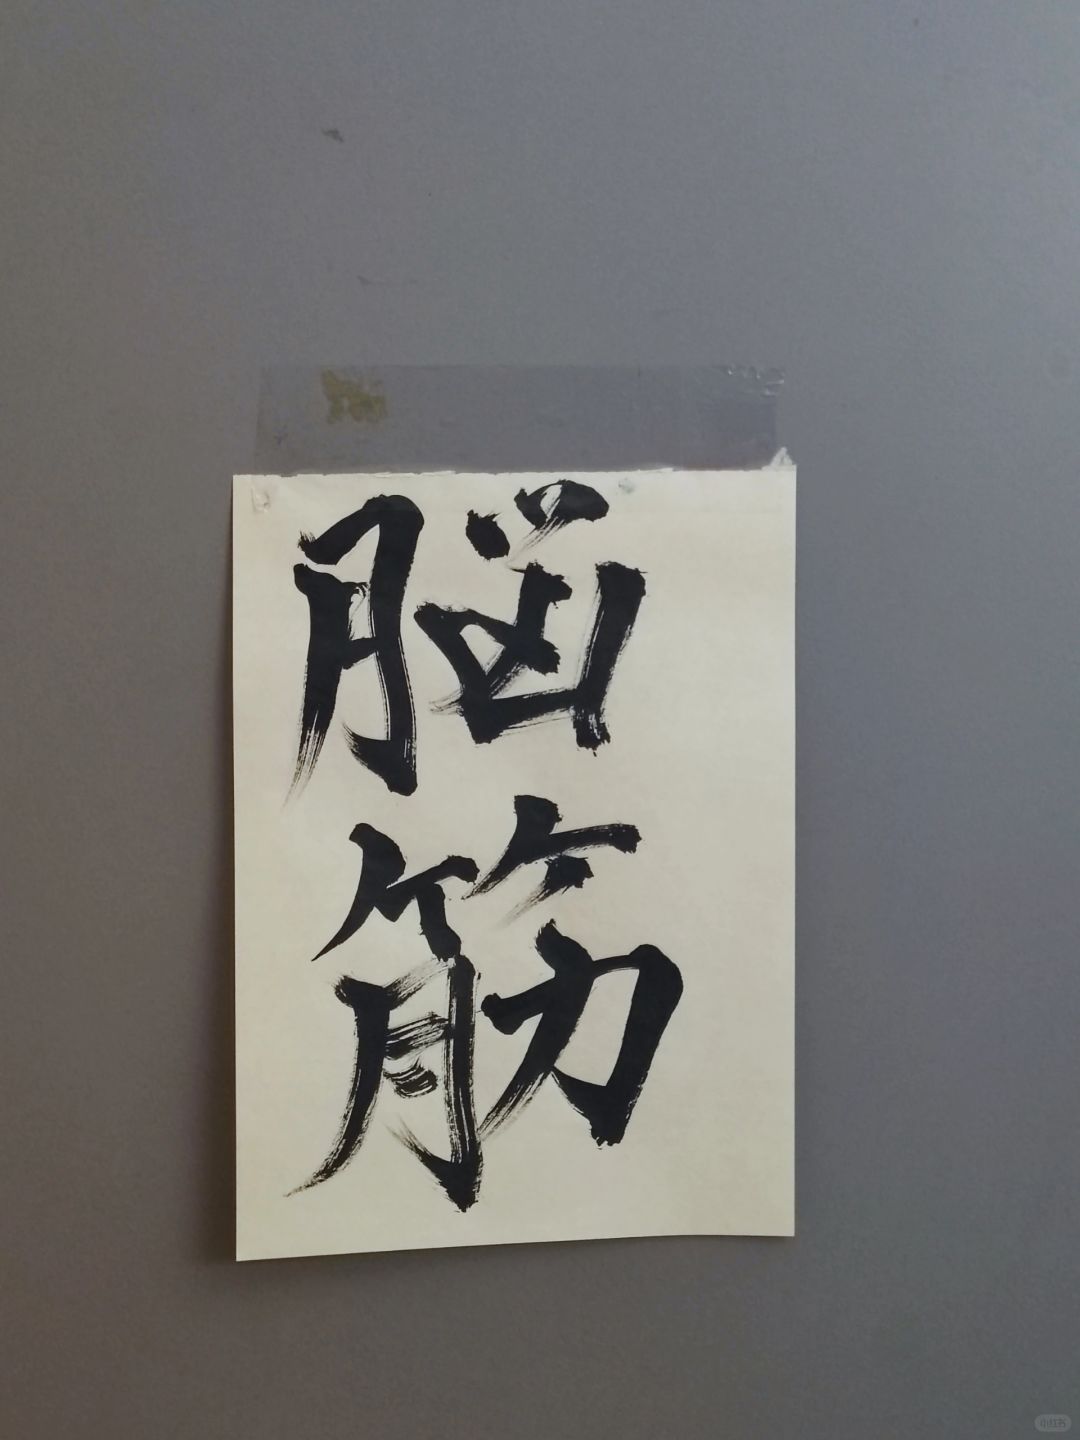 脳
筋
小红书